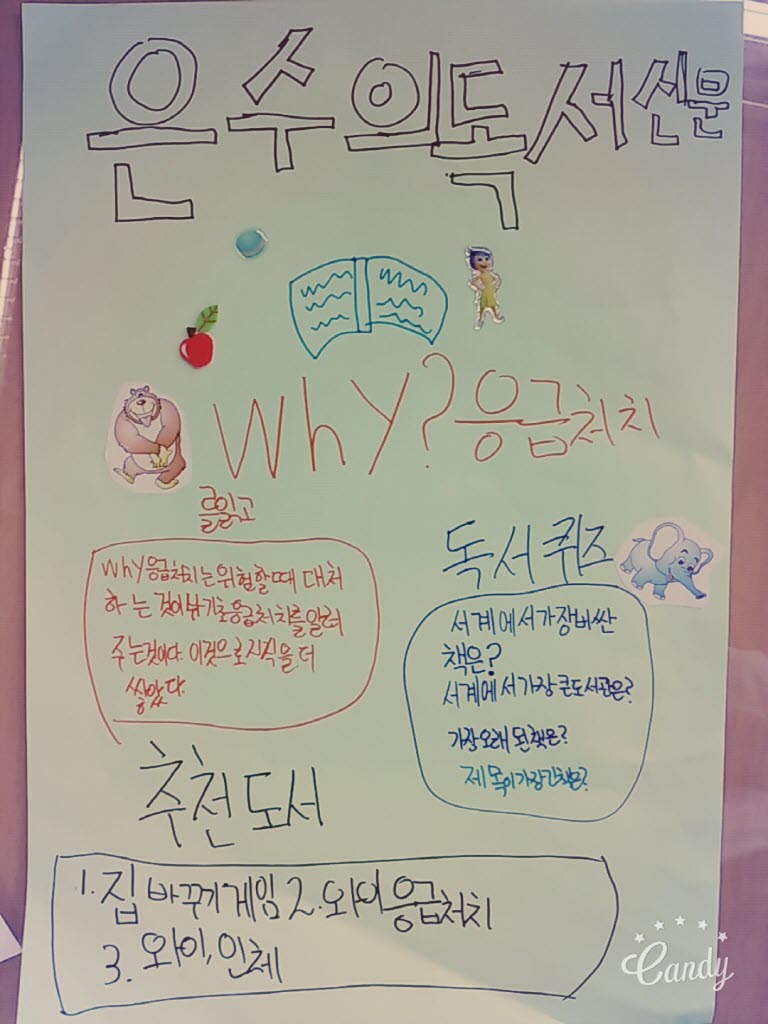 은수의독서신문
Why?응급처치
를읽고
Why응급처치는위험할때 대처
하는 것이나기초응급처치를알려
주는것이다. 이것으로지식을 더
쌓았다.
독서퀴즈
서계에서가장비싼
책은?
서계에서가장큰도서관은?
가장오래된책은?
제목이가장긴책은?
추천도서
1. 집 바꾸기게임 2. 와이 응급처치
3. 와이, 인체
Candy